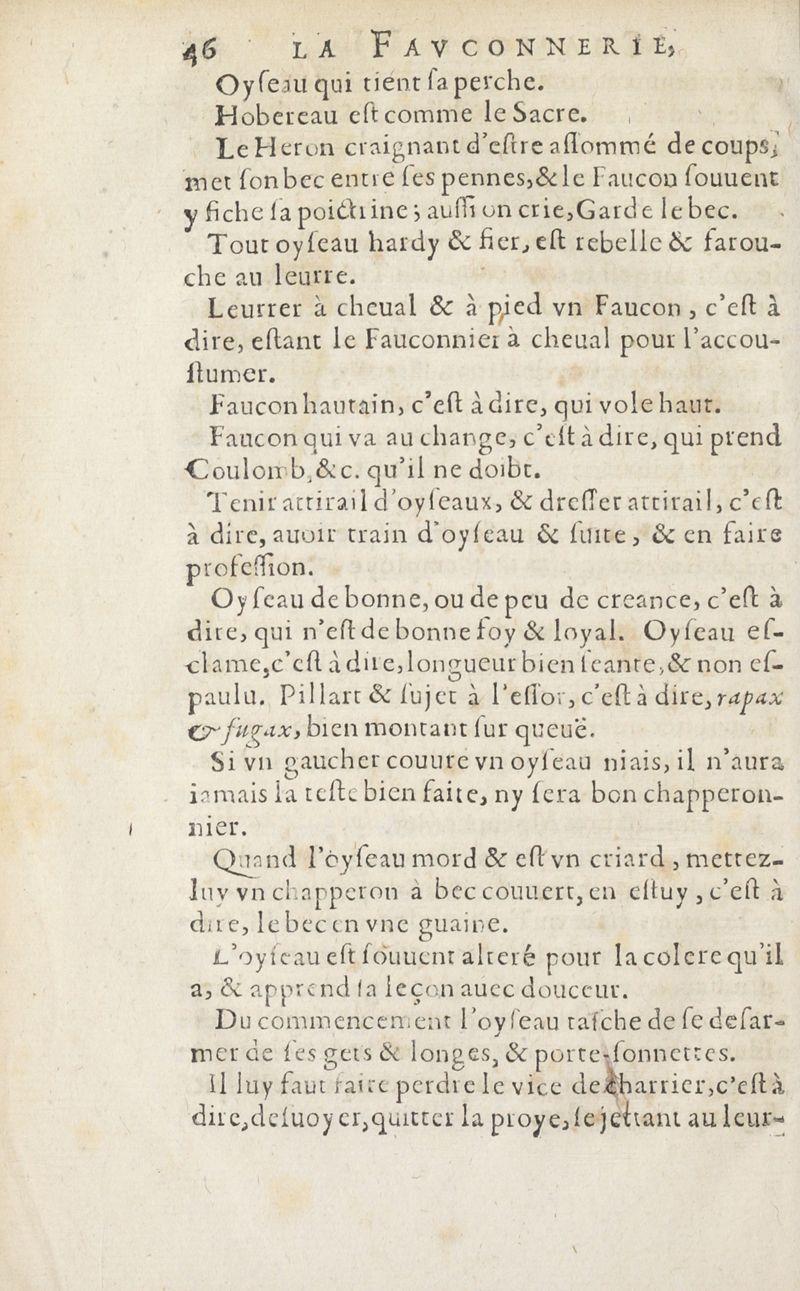 46 LA FAVCONNERIE,
Oyſeau qui tient ſa perche.
Hobereau eſt comme le Sacre.
Le Heron craignant d'eſtre aſſommé de coups,
met ſon bec entre ſes pennes, & le Faucon ſouuent
y fiche ſa poictrine; auſſi on crie, Garde le bec.
Tout oyſeau hardy & fier, eſt rebelle & farou-
che au leurre.
Leurrer à cheual & à pied vn Faucon, c'eſt à
dire, eſtant le Fauconnier à cheual pour l'accou-
ſtumer.
Faucon hautain, c'eſt à dire, qui vole haut.
Faucon qui va au change, c'eſt à dire, qui prend
Coulomb, &c. qu'il ne doibt.
Tenir attirail d'oyſeaux, & dreſſer attirail, c'eſt
à dire, auoir train d'oyſeau & ſuite, & en faire
profeſſion.
Oyſeau de bonne, ou de peu de creance, c'eſt à
dire, qui n'eſt de bonne foy & loyal. Oyſeau eſ-
clame, c'eſt à dire, longueur bien ſeante, & non eſ-
paulu. Pillart & ſujet à l'eſſor, c'eſt à dire, rapax
& fugax, bien montant ſur queuë.
Si vn gaucher couure vn oyſeau niais, il n'aura
iamais la teſte bien faite, ny ſera bon chapperon-
nier.
Quand l'oyſeau mord & eſt vn criard, mettez-
luy vn chapperon à bec couuert, en eſtuy, c'eſt à
dire, le bec en vne guaine.
L'oyſeau eſt ſouuent alteré pour la colere qu'il
a, & apprend ſa leçon auec douceur.
Du commencement l'oyſeau taſche de ſe deſar-
mer de ſes gets & longes, & porte-ſonnettes.
Il luy faut faire perdre le vice de charrier, c'eſt à
dire, deſuoyer, quitter la proye, ſe jettant au leur-